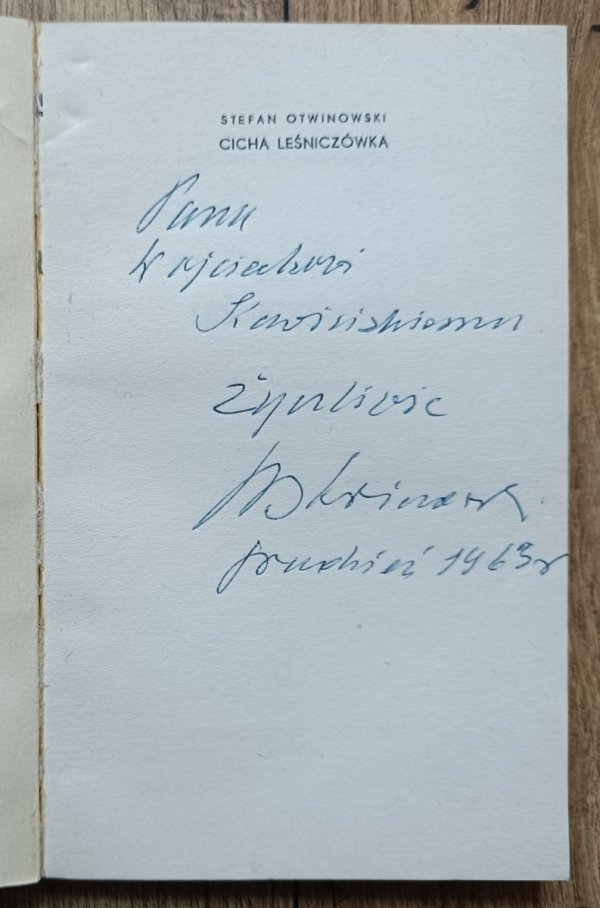 STEFAN OTWINOWSKI
CICHA LEŚNICZÓWKA
Panu
Wojciechowi
życzliwie
Otwinowski
grudzień 1963 r